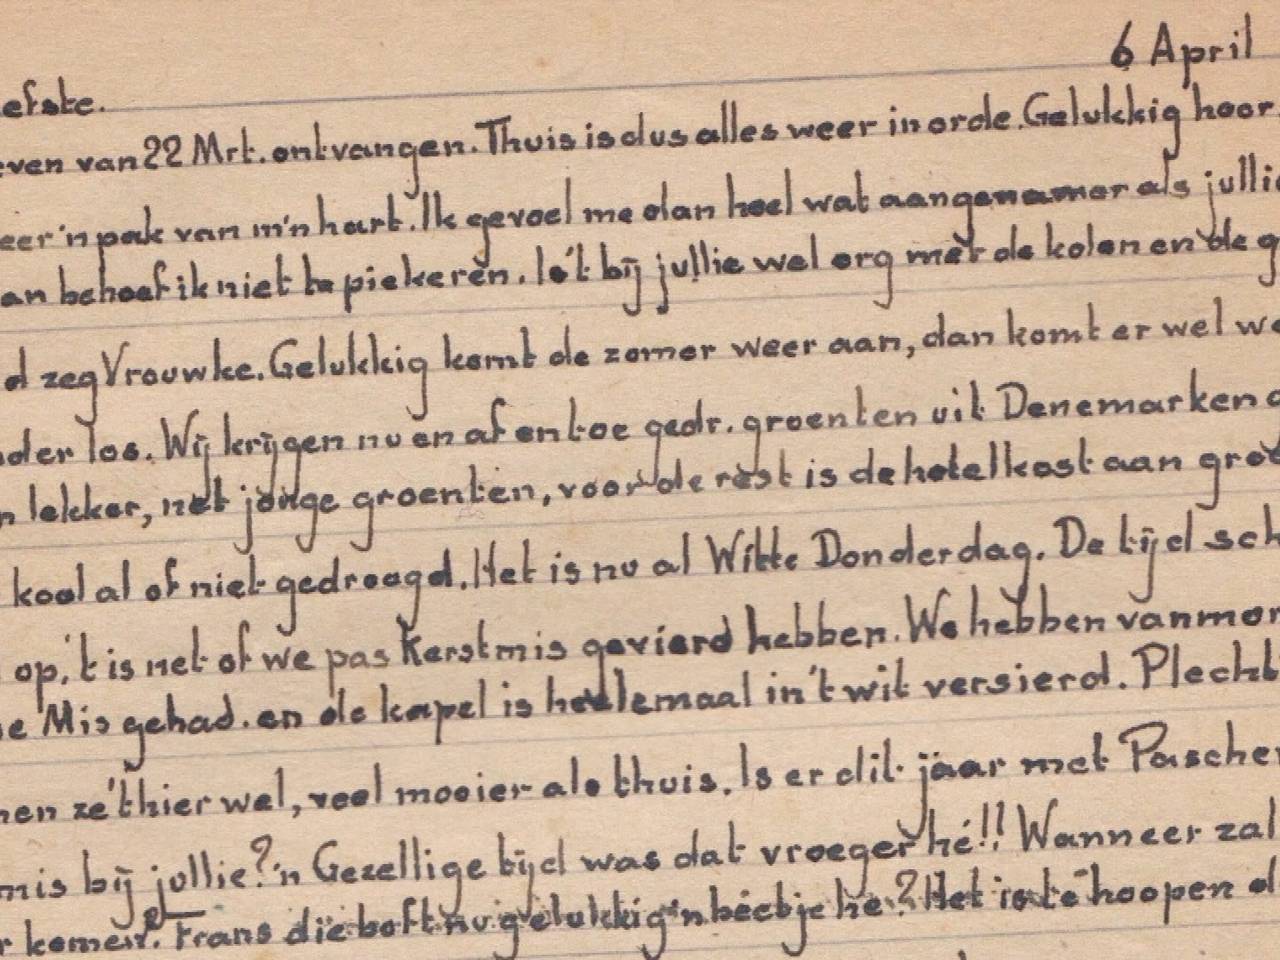 6 April
efste.
even van 22 Mrt. ontvangen. Thuis is dus alles weer in orde. Gelukkig hoor.
eer 'n pak van m'n hart. Ik gevoel me dan heel wat aangenamer als jullie
an behoef ik niet te piekeren. Is't bij jullie wel erg met de kolen en de g
d zeg Vrouwke. Gelukkig komt de zomer weer aan, dan komt er wel we
der los. Wij krijgen nu en af en toe gedr. groenten uit Denemarken
n lekker, net jonge groenten, voor de rest is de hotelkost aan groe
kool al of niet gedroogd. Het is nu al Witte Donderdag. De tijd sch
op, 't is net of we pas Kerstmis gevierd hebben. We hebben vanmor
e Mis gehad. en de kapel is heelemaal in 't wit versierd. Plecht
nen ze 't hier wel, veel mooier als thuis. Is er dit jaar met Paschen
mis bij jullie? 'n Gezellige tijd was dat vroeger hé!! Wanneer zal
r komen. Frans die boft nu gelukkig 'n beetje he? Het is te hoopen d